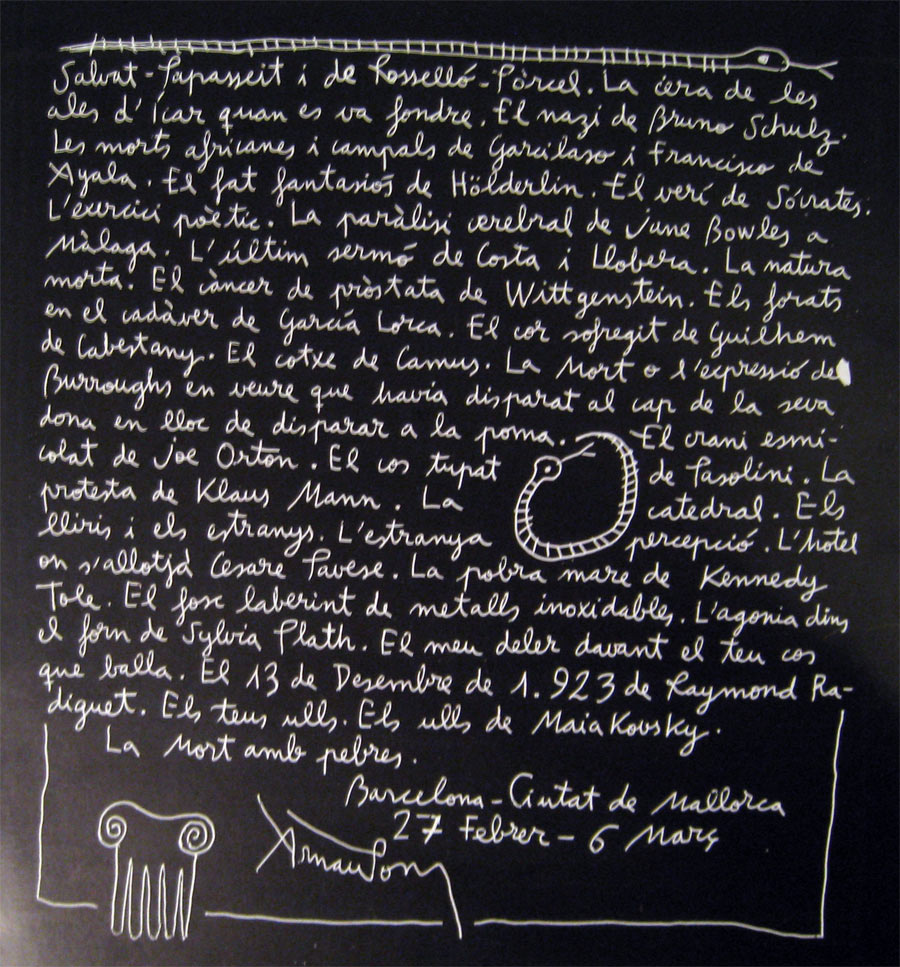 Salvat-Papasseit i de Rosselló-Pòrcel. La cera de les
ales d'Ícar quan es va fondre. El nazi de Bruno Schulz.
Les morts africanes i campals de Garcilaso i Francisco de
Ayala. El fat fantasiós de Hölderlin. El verí de Sócrates.
L'exercici poètic. La paràlisi cerebral de Jane Bowles a
Màlaga. L'últim sermó de Costa i Llobera. La natura
morta. El càncer de pròstata de Wittgenstein. Els forats
en el cadàver de García Lorca. El cor sofregit de Guilhem
de Cabestany. El cotxe de Camus. La Mort o l'expressió de
Burroughs en veure que havia disparat al cap de la seva
dona en lloc de disparar a la poma. El crani esmi-
colat de Joe Orton. El cos tupat de Pasolini. La
protesta de Klaus Mann. La catedral. Els
lliris i els estranys. L'estranya percepció. L'hotel
on s'allotjà Cesare Pavese. La pobra mare de Kennedy
Tole. El fosc laberint de metalls inoxidables. L'agonia dins
el forn de Sylvia Plath. El meu deler davant el teu cos
que balla. El 13 de Desembre de 1.923 de Raymond Ra-
diguet. Els teus ulls. Els ulls de Maiakovsky.
La Mort amb pebres.
Barcelona-Ciutat de Mallorca
27 Febrer-6 Març
Arnau Pons